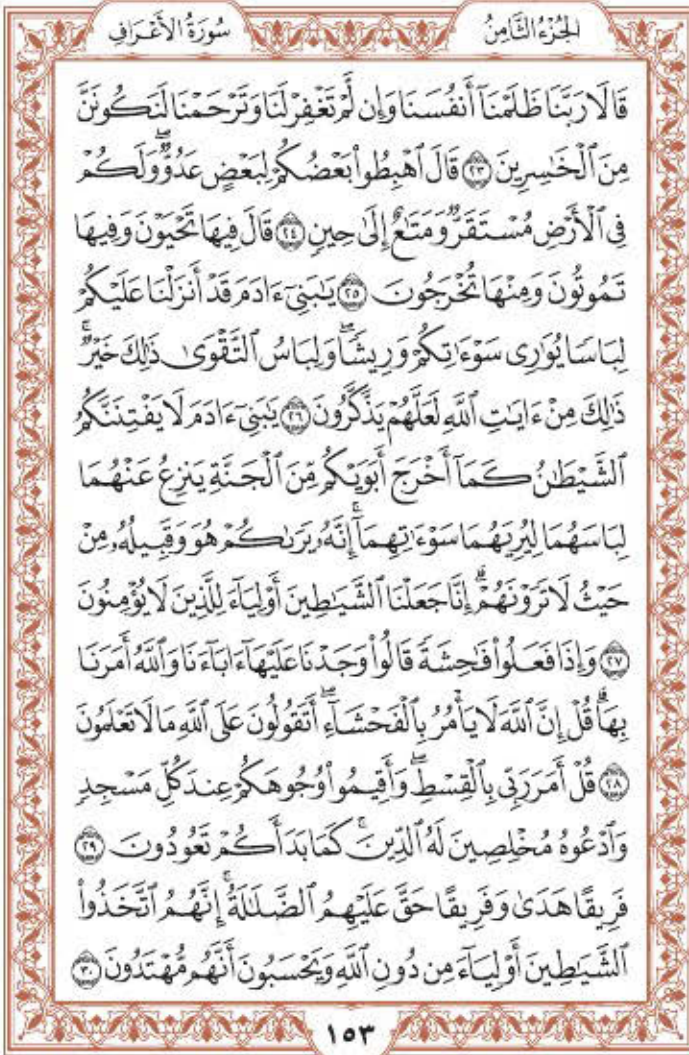 الجُزْءُ الثَّامِنُ سُورَةُ الأَعْرَافِ
قَالَا رَبَّنَا ظَلَمْنَآ أَنفُسَنَا وَإِن لَّمْ تَغْفِرْ لَنَا وَتَرْحَمْنَا لَنَكُونَنَّ
مِنَ ٱلْخَٰسِرِينَ ٢٣ قَالَ ٱهْبِطُوا۟ بَعْضُكُمْ لِبَعْضٍ عَدُوٌّۖ وَلَكُمْ
فِي ٱلْأَرْضِ مُسْتَقَرٌّ وَمَتَٰعٌ إِلَىٰ حِينٍ ٢٤ قَالَ فِيهَا تَحْيَوْنَ وَفِيهَا
تَمُوتُونَ وَمِنْهَا تُخْرَجُونَ ٢٥ يَٰبَنِيٓ ءَادَمَ قَدْ أَنزَلْنَا عَلَيْكُمْ
لِبَاسًا يُوَٰرِي سَوْءَٰتِكُمْ وَرِيشًاۖ وَلِبَاسُ ٱلتَّقْوَىٰ ذَٰلِكَ خَيْرٌۚ
ذَٰلِكَ مِنْ ءَايَٰتِ ٱللَّهِ لَعَلَّهُمْ يَذَّكَّرُونَ ٢٦ يَٰبَنِيٓ ءَادَمَ لَا يَفْتِنَنَّكُمُ
ٱلشَّيْطَٰنُ كَمَآ أَخْرَجَ أَبَوَيْكُم مِّنَ ٱلْجَنَّةِ يَنزِعُ عَنْهُمَا
لِبَاسَهُمَا لِيُرِيَهُمَا سَوْءَٰتِهِمَآۚ إِنَّهُۥ يَرَىٰكُمْ هُوَ وَقَبِيلُهُۥ مِنْ
حَيْثُ لَا تَرَوْنَهُمْۗ إِنَّا جَعَلْنَا ٱلشَّيَٰطِينَ أَوْلِيَآءَ لِلَّذِينَ لَا يُؤْمِنُونَ
٢٧ وَإِذَا فَعَلُوا۟ فَٰحِشَةً قَالُوا۟ وَجَدْنَا عَلَيْهَآ ءَابَآءَنَا وَٱللَّهُ أَمَرَنَا
بِهَاۗ قُلْ إِنَّ ٱللَّهَ لَا يَأْمُرُ بِٱلْفَحْشَآءِۖ أَتَقُولُونَ عَلَى ٱللَّهِ مَا لَا تَعْلَمُونَ
٢٨ قُلْ أَمَرَ رَبِّي بِٱلْقِسْطِۖ وَأَقِيمُوا۟ وُجُوهَكُمْ عِندَ كُلِّ مَسْجِدٍ
وَٱدْعُوهُ مُخْلِصِينَ لَهُ ٱلدِّينَۚ كَمَا بَدَأَكُمْ تَعُودُونَ ٢٩
فَرِيقًا هَدَىٰ وَفَرِيقًا حَقَّ عَلَيْهِمُ ٱلضَّلَٰلَةُۚ إِنَّهُمُ ٱتَّخَذُوا۟
ٱلشَّيَٰطِينَ أَوْلِيَآءَ مِن دُونِ ٱللَّهِ وَيَحْسَبُونَ أَنَّهُم مُّهْتَدُونَ ٣٠
١٥٣